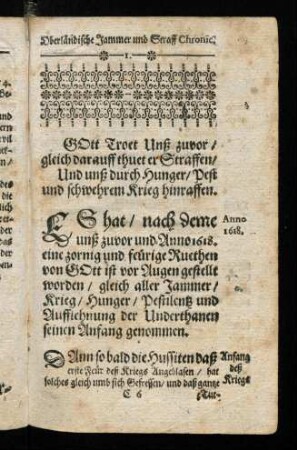 Oberländische Jammer und Straff Chronic.
1.
GOtt Troet Unß zuvor /
gleich darauff thuet er Straffen /
Und unß durch Hunger / Pest
und schwehrem Krieg hinraffen.
ES hat / nach deme
Anno
1618.
unß zuvor und Anno 1618.
eine zornig und feürige Ruethen
von GOtt ist vor Augen gestellt
worden / gleich aller Jammer /
Krieg / Hunger / Pestilentz und
Auffiehnung der Underthanen
seinen Anfang genommen.
DAnn so bald die Hussiten daß
Anfang
deß
Kriegs
erste Feür deß Kriegs Angeblasen / hat
solches gleich umb sich Gefressen / und daß gantze
C 6